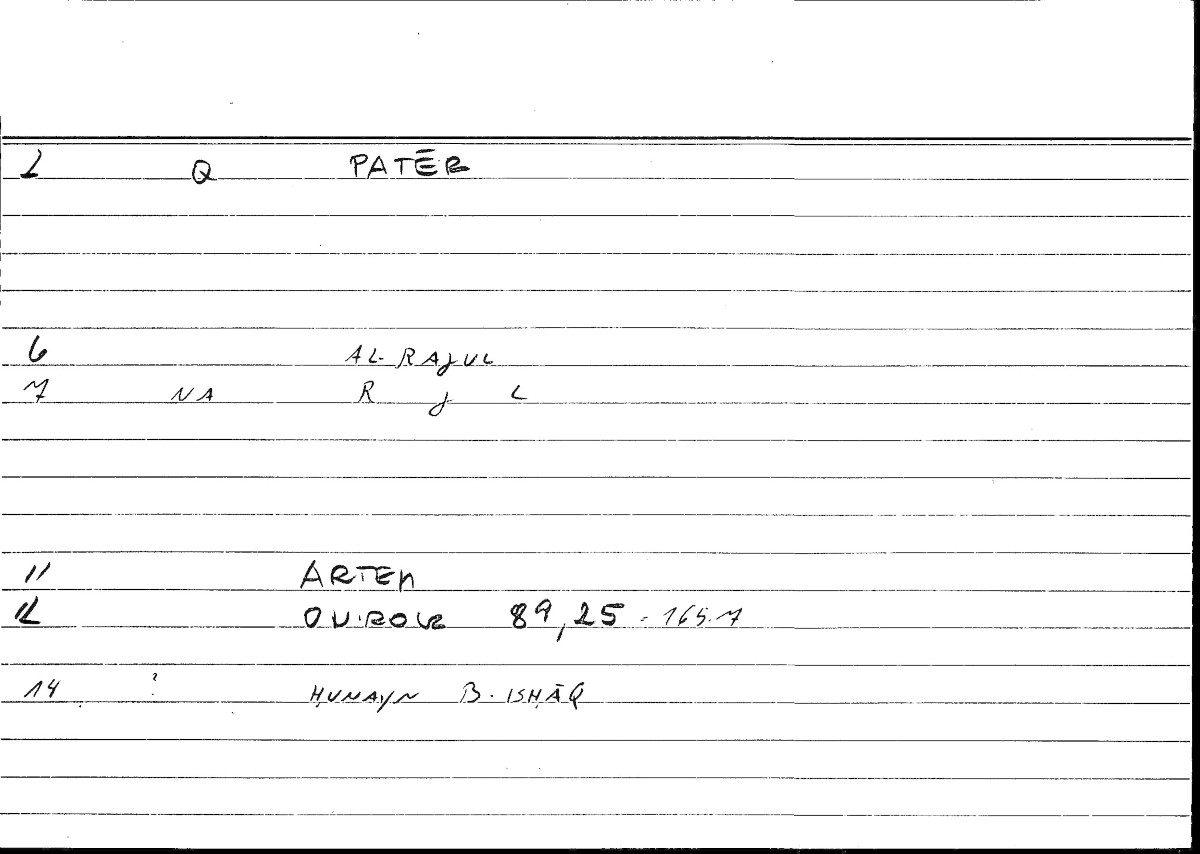 2 Q PATĒR
6 AL-RAJUL
7 NA R J L
11 ARTEM
12 ONIROCR 89,25 - 165.7
14 ? ḤUNAYN B. ISḤĀQ